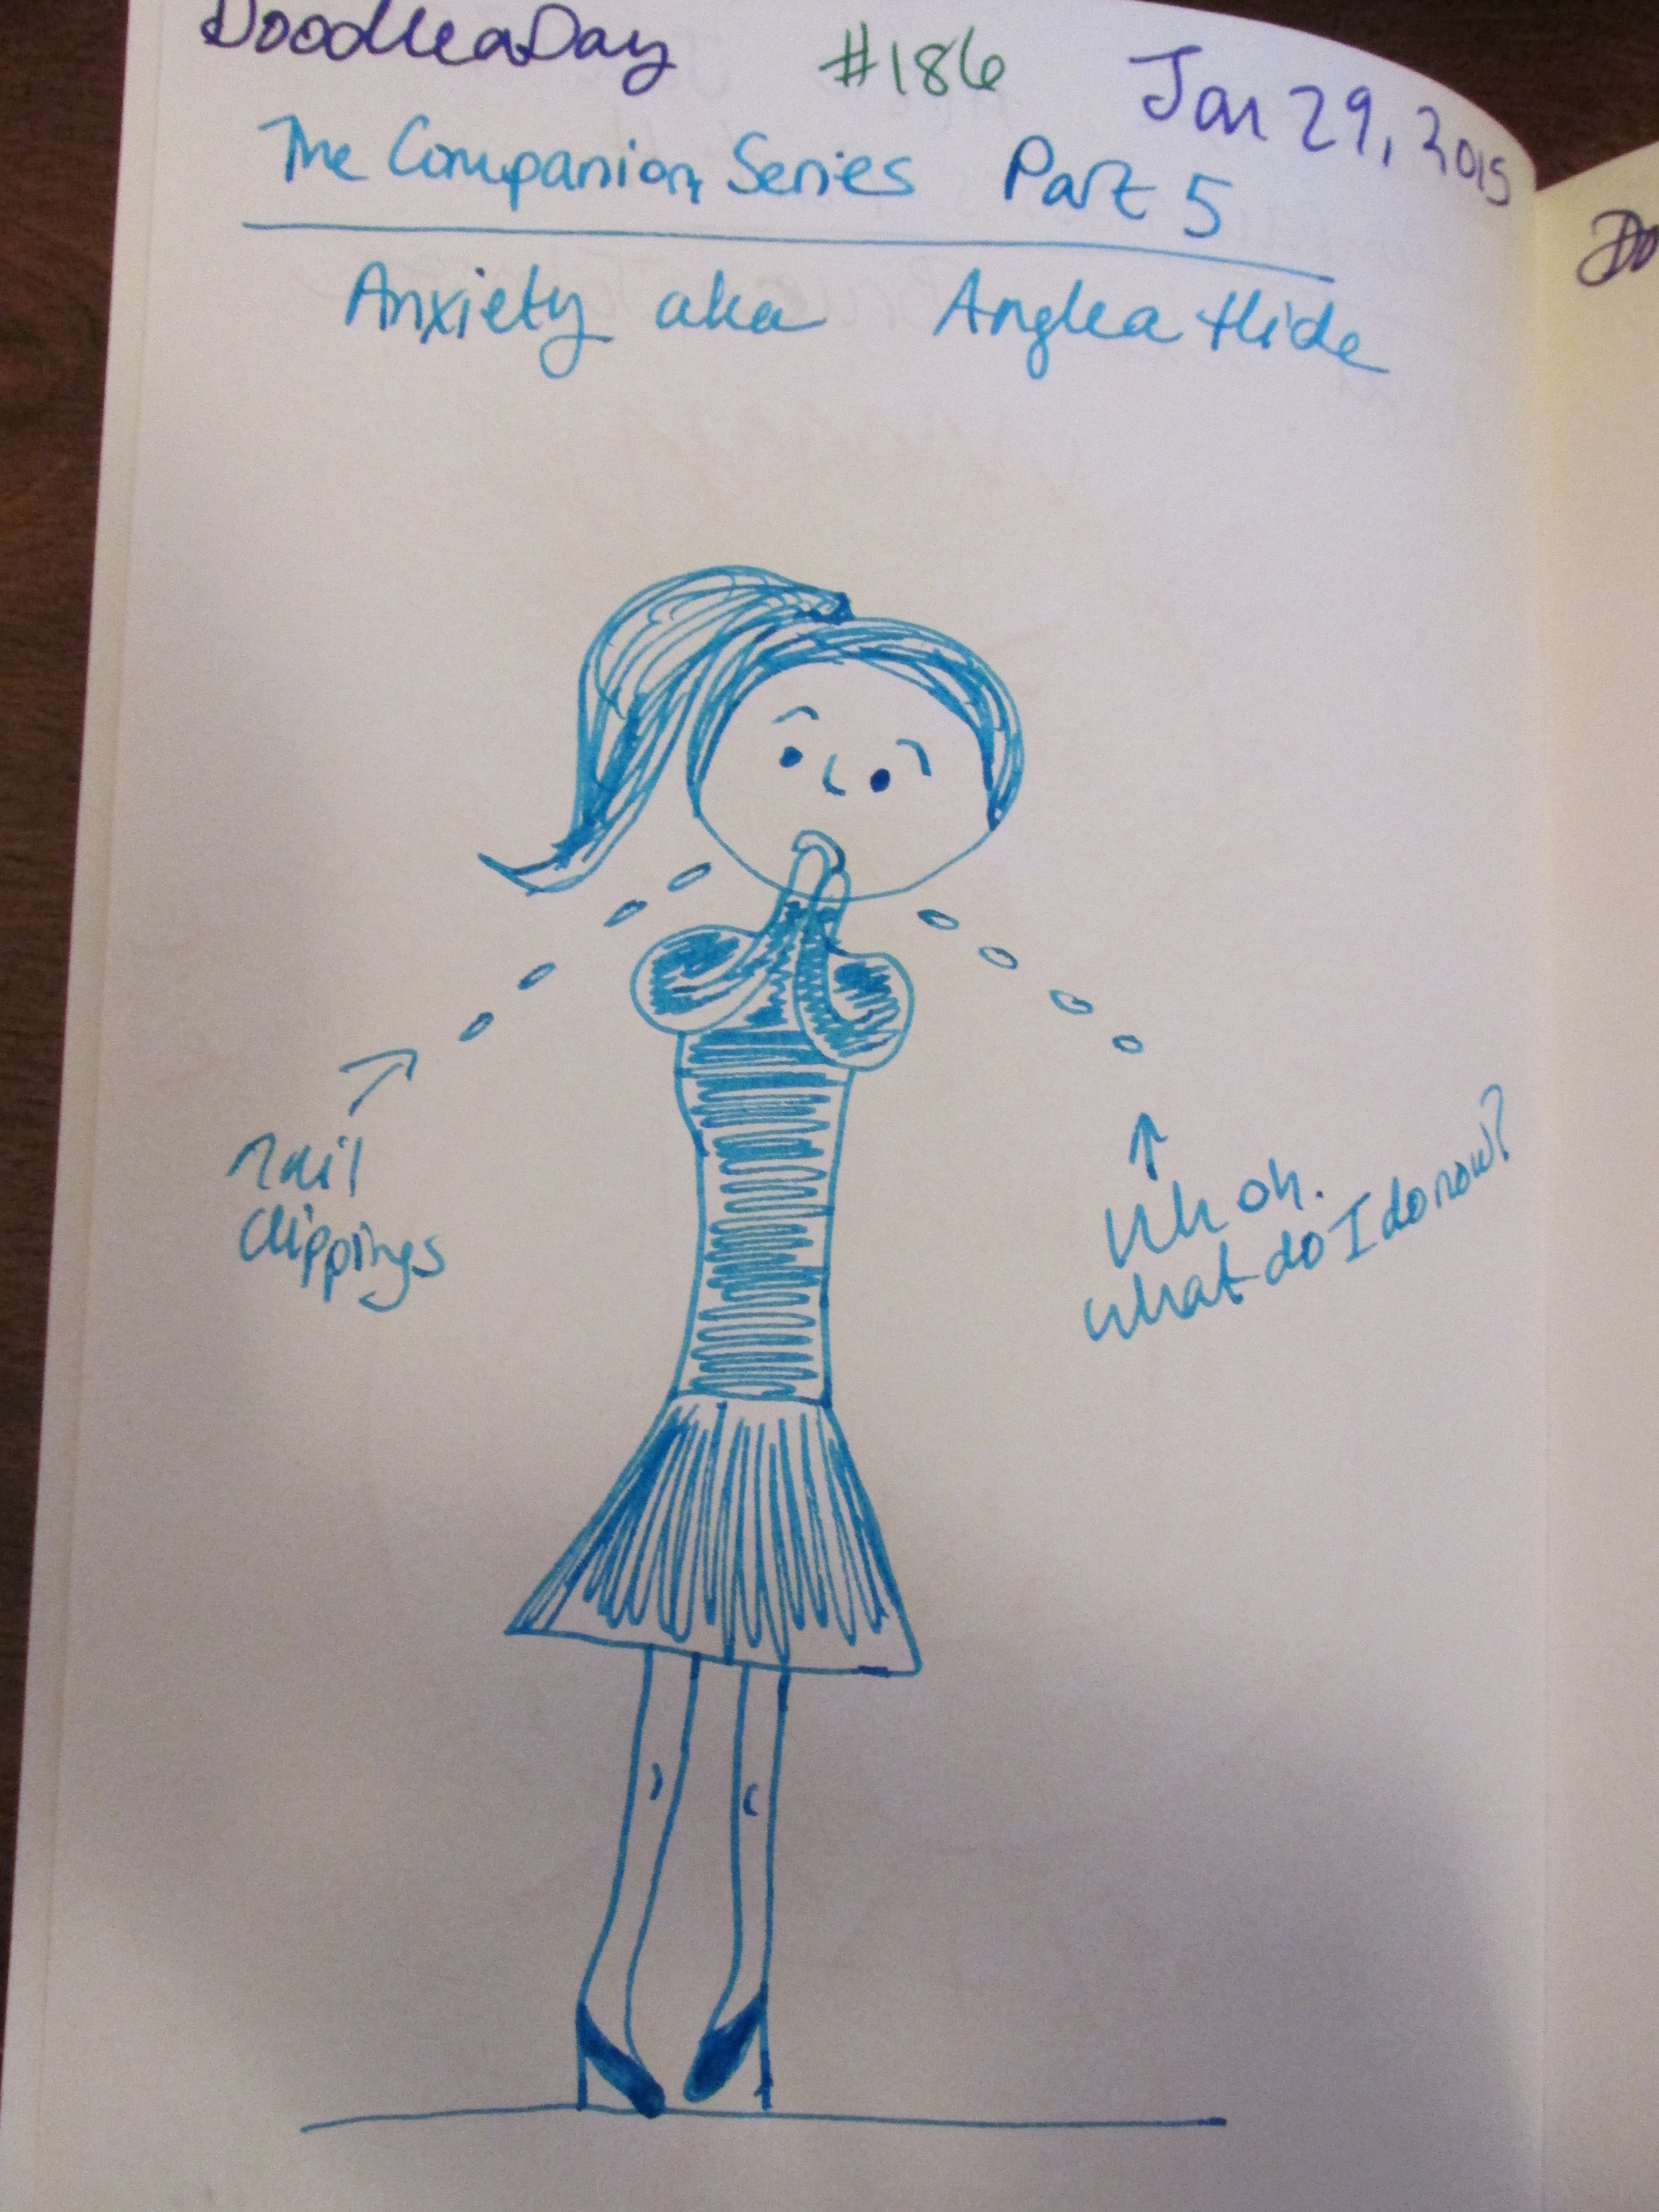 DoodleaDay #186 Jan 29, 2015
The Companion Series Part 5
Anxiety aka Anglea Hide
nail
clippings
Uh oh.
what do I do now?
Do